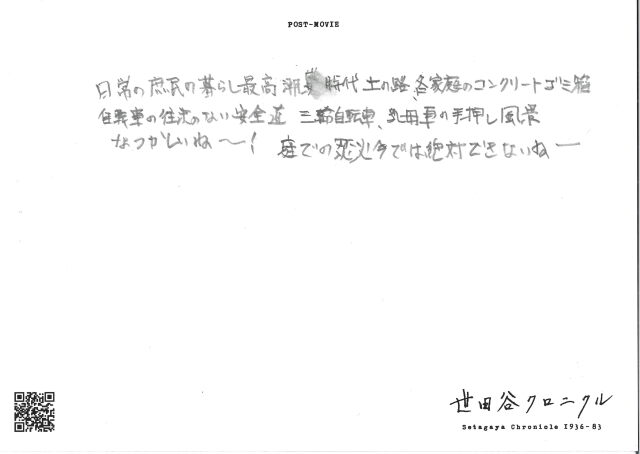 POST-MOVIE
日常の庶民の暮らし最高潮 時代 土の路、各家庭のコンクリートゴミ箱
自転車の往来のない安全道 三輪自転車、乳母車の手押し風景
なつかしいね〜！ 庭での焚火今では絶対できないねー
世田谷クロニクル
Setagaya Chronicle 1936-83